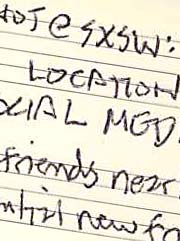 HOT @ SXSW:
LOCATION
OCIAL MED
friends near
new fr